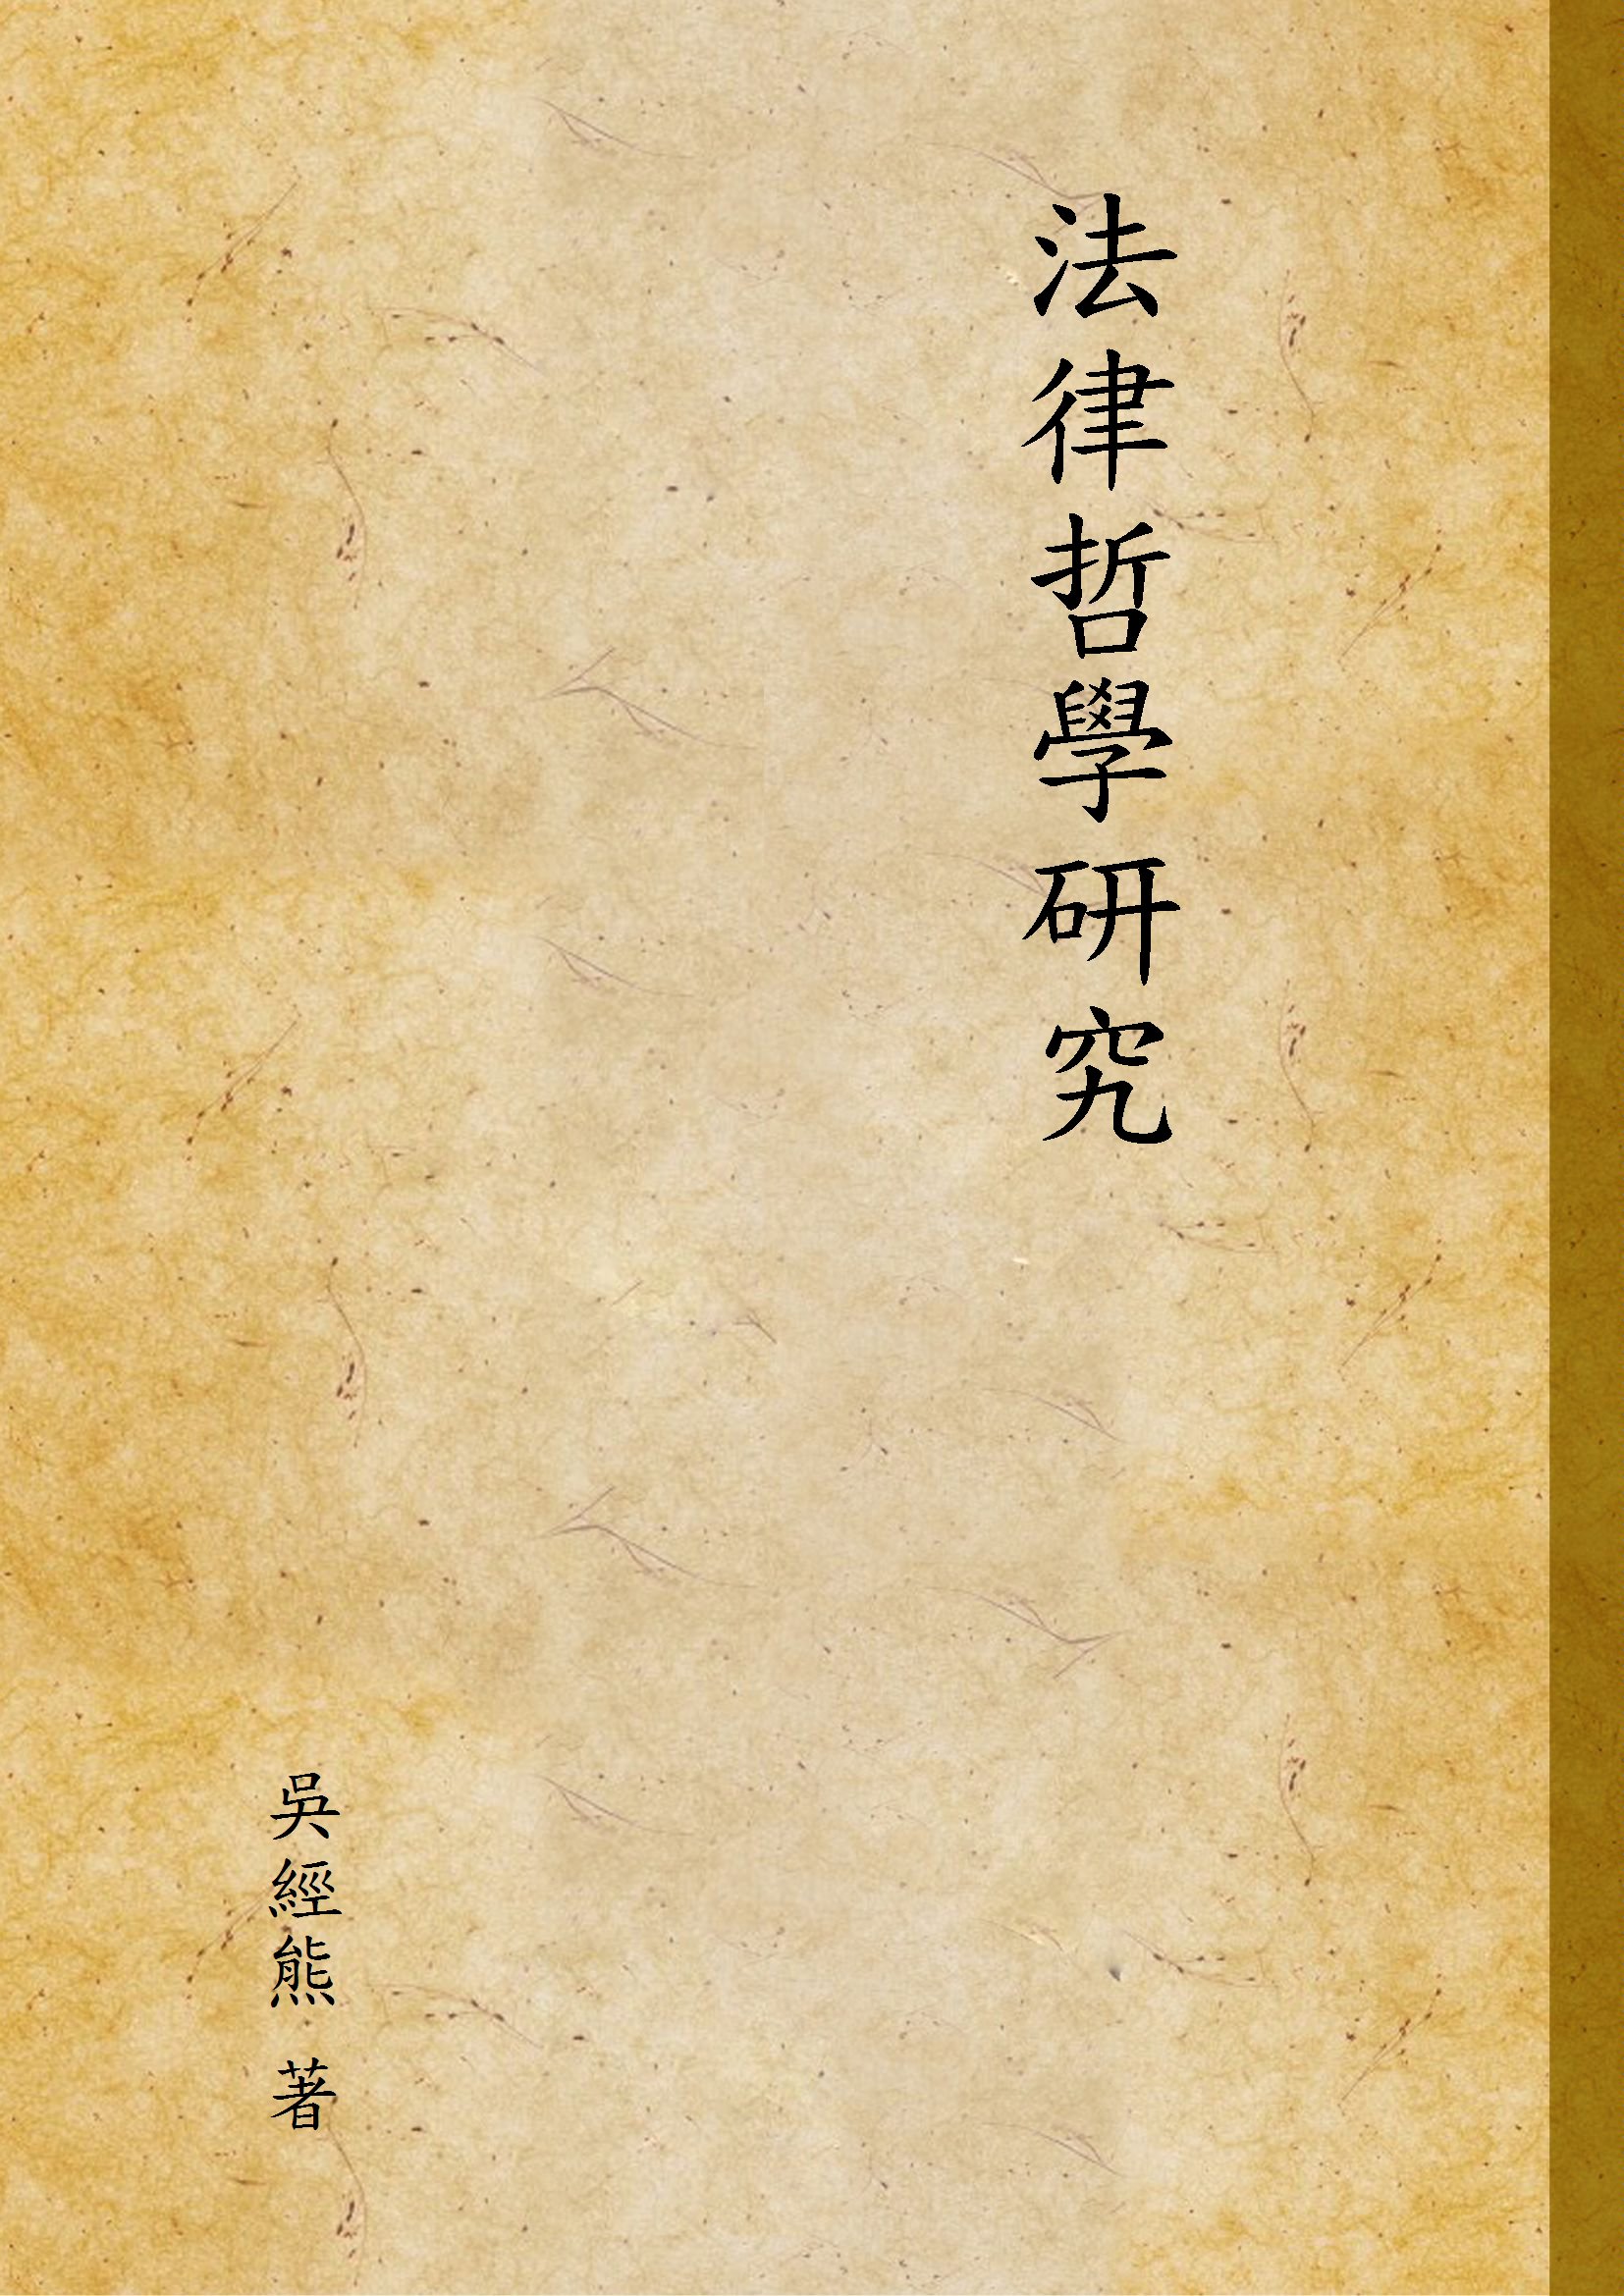 法律哲學研究
吳經熊 著